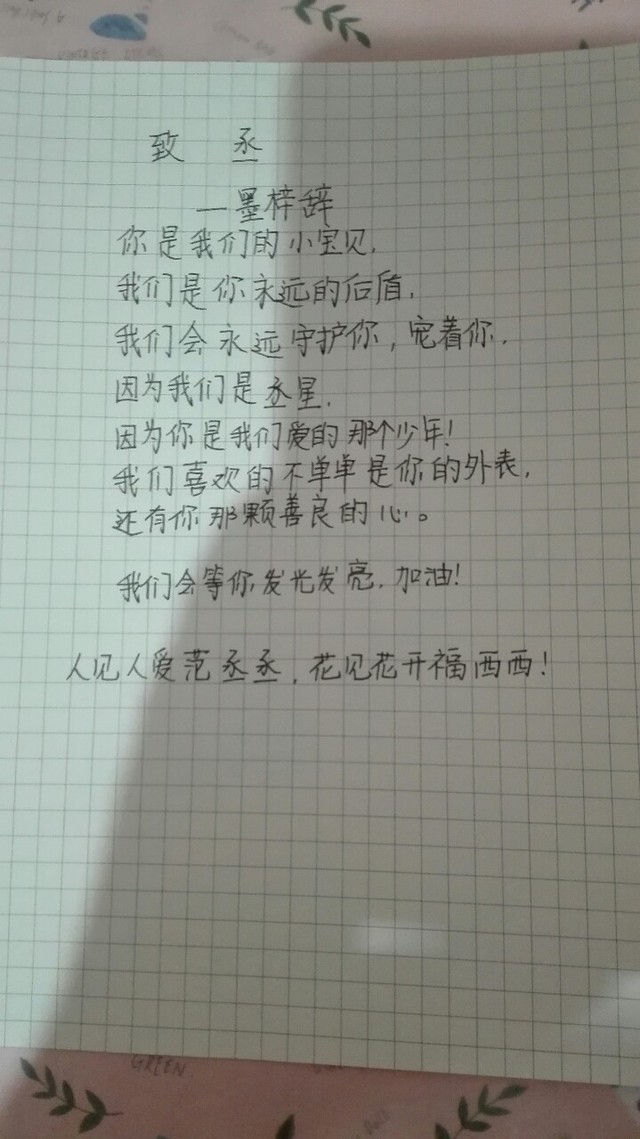 致 丞
—墨梓辞
你是我们的小宝贝.
我们是你永远的后盾.
我们会永远守护你,宠着你.
因为我们是丞星.
因为你是我们爱的那个少年!
我们喜欢的不单单是你的外表,
还有你那颗善良的心。
我们会等你发光发亮.加油!
人见人爱范丞丞,花见花开福西西!
GREEN